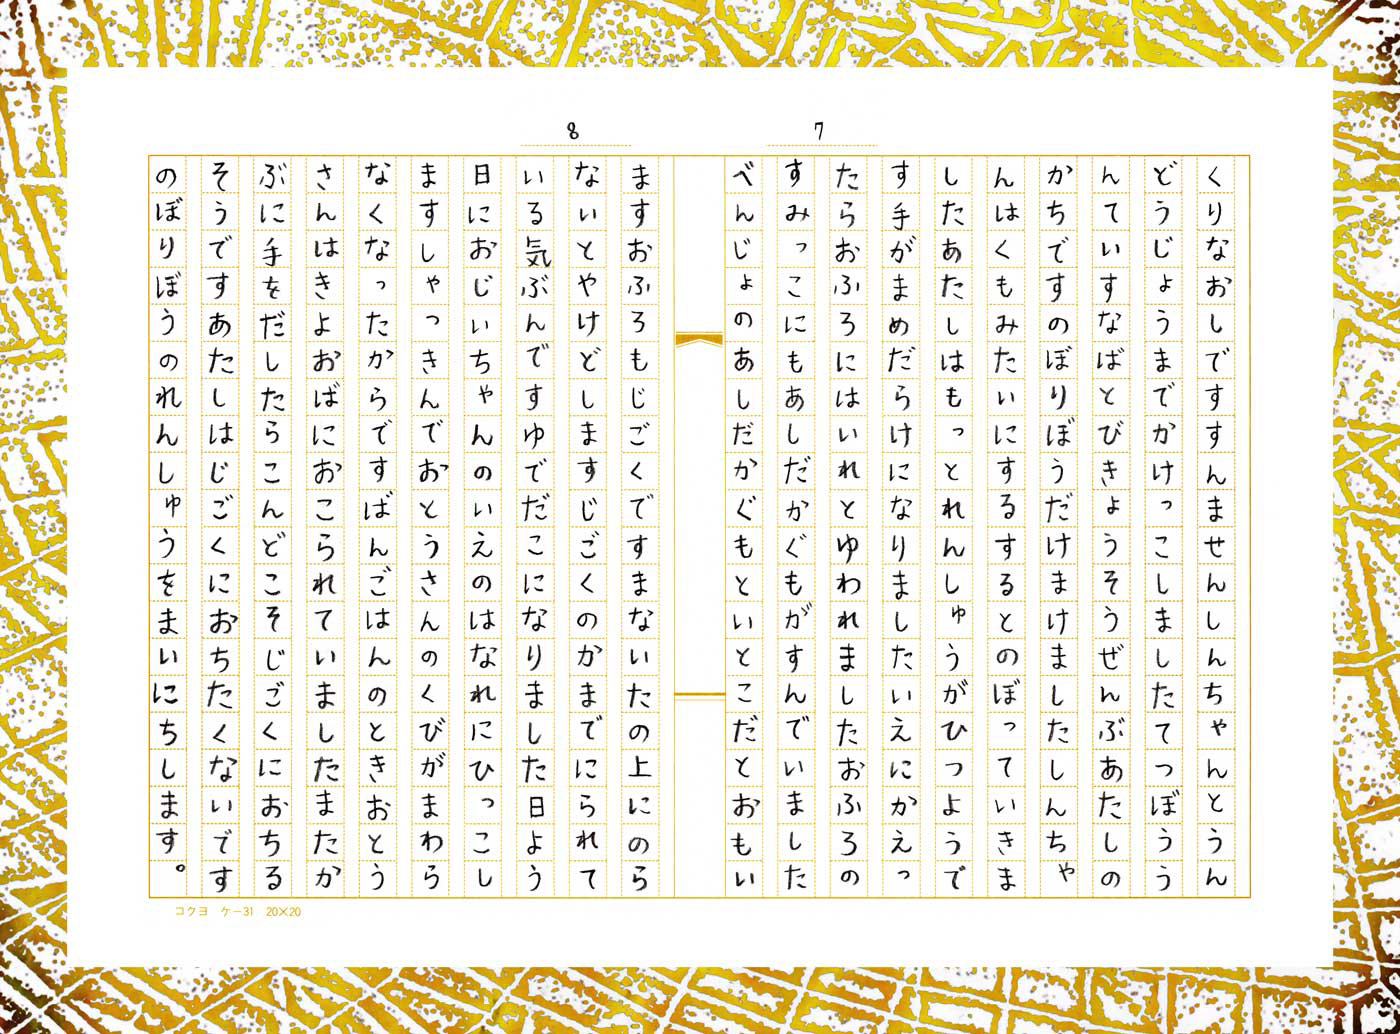 7
くりなおしですすんませんしんちゃんとうん
どうじょうまでかけっこしましたてつぼうう
んていすなばとびきょうそうぜんぶあたしの
かちですのぼりぼうだけまけましたしんちゃ
んはくもみたいにするするとのぼっていきま
したあたしはもっとれんしゅうがひつようで
す手がまめだらけになりましたいえにかえっ
たらおふろにはいれとゆわれましたおふろの
すみっこにもあしだかぐもがすんでいました
べんじょのあしだかぐもといとこだとおもい
8
ますおふろもじごくですまないたの上にのら
ないとやけどしますじごくのかまでにられて
いる気ぶんですゆでだこになりました日よう
日におじいちゃんのいえのはなれにひっこし
ますしゃっきんでおとうさんのくびがまわら
なくなったからですばんごはんのときおとう
さんはきよおばにおこられていましたまたか
ぶに手をだしたらこんどこそじごくにおちる
そうですあたしはじごくにおちたくないです
のぼりぼうのれんしゅうをまいにちします。
コクヨ ケー31 20×20